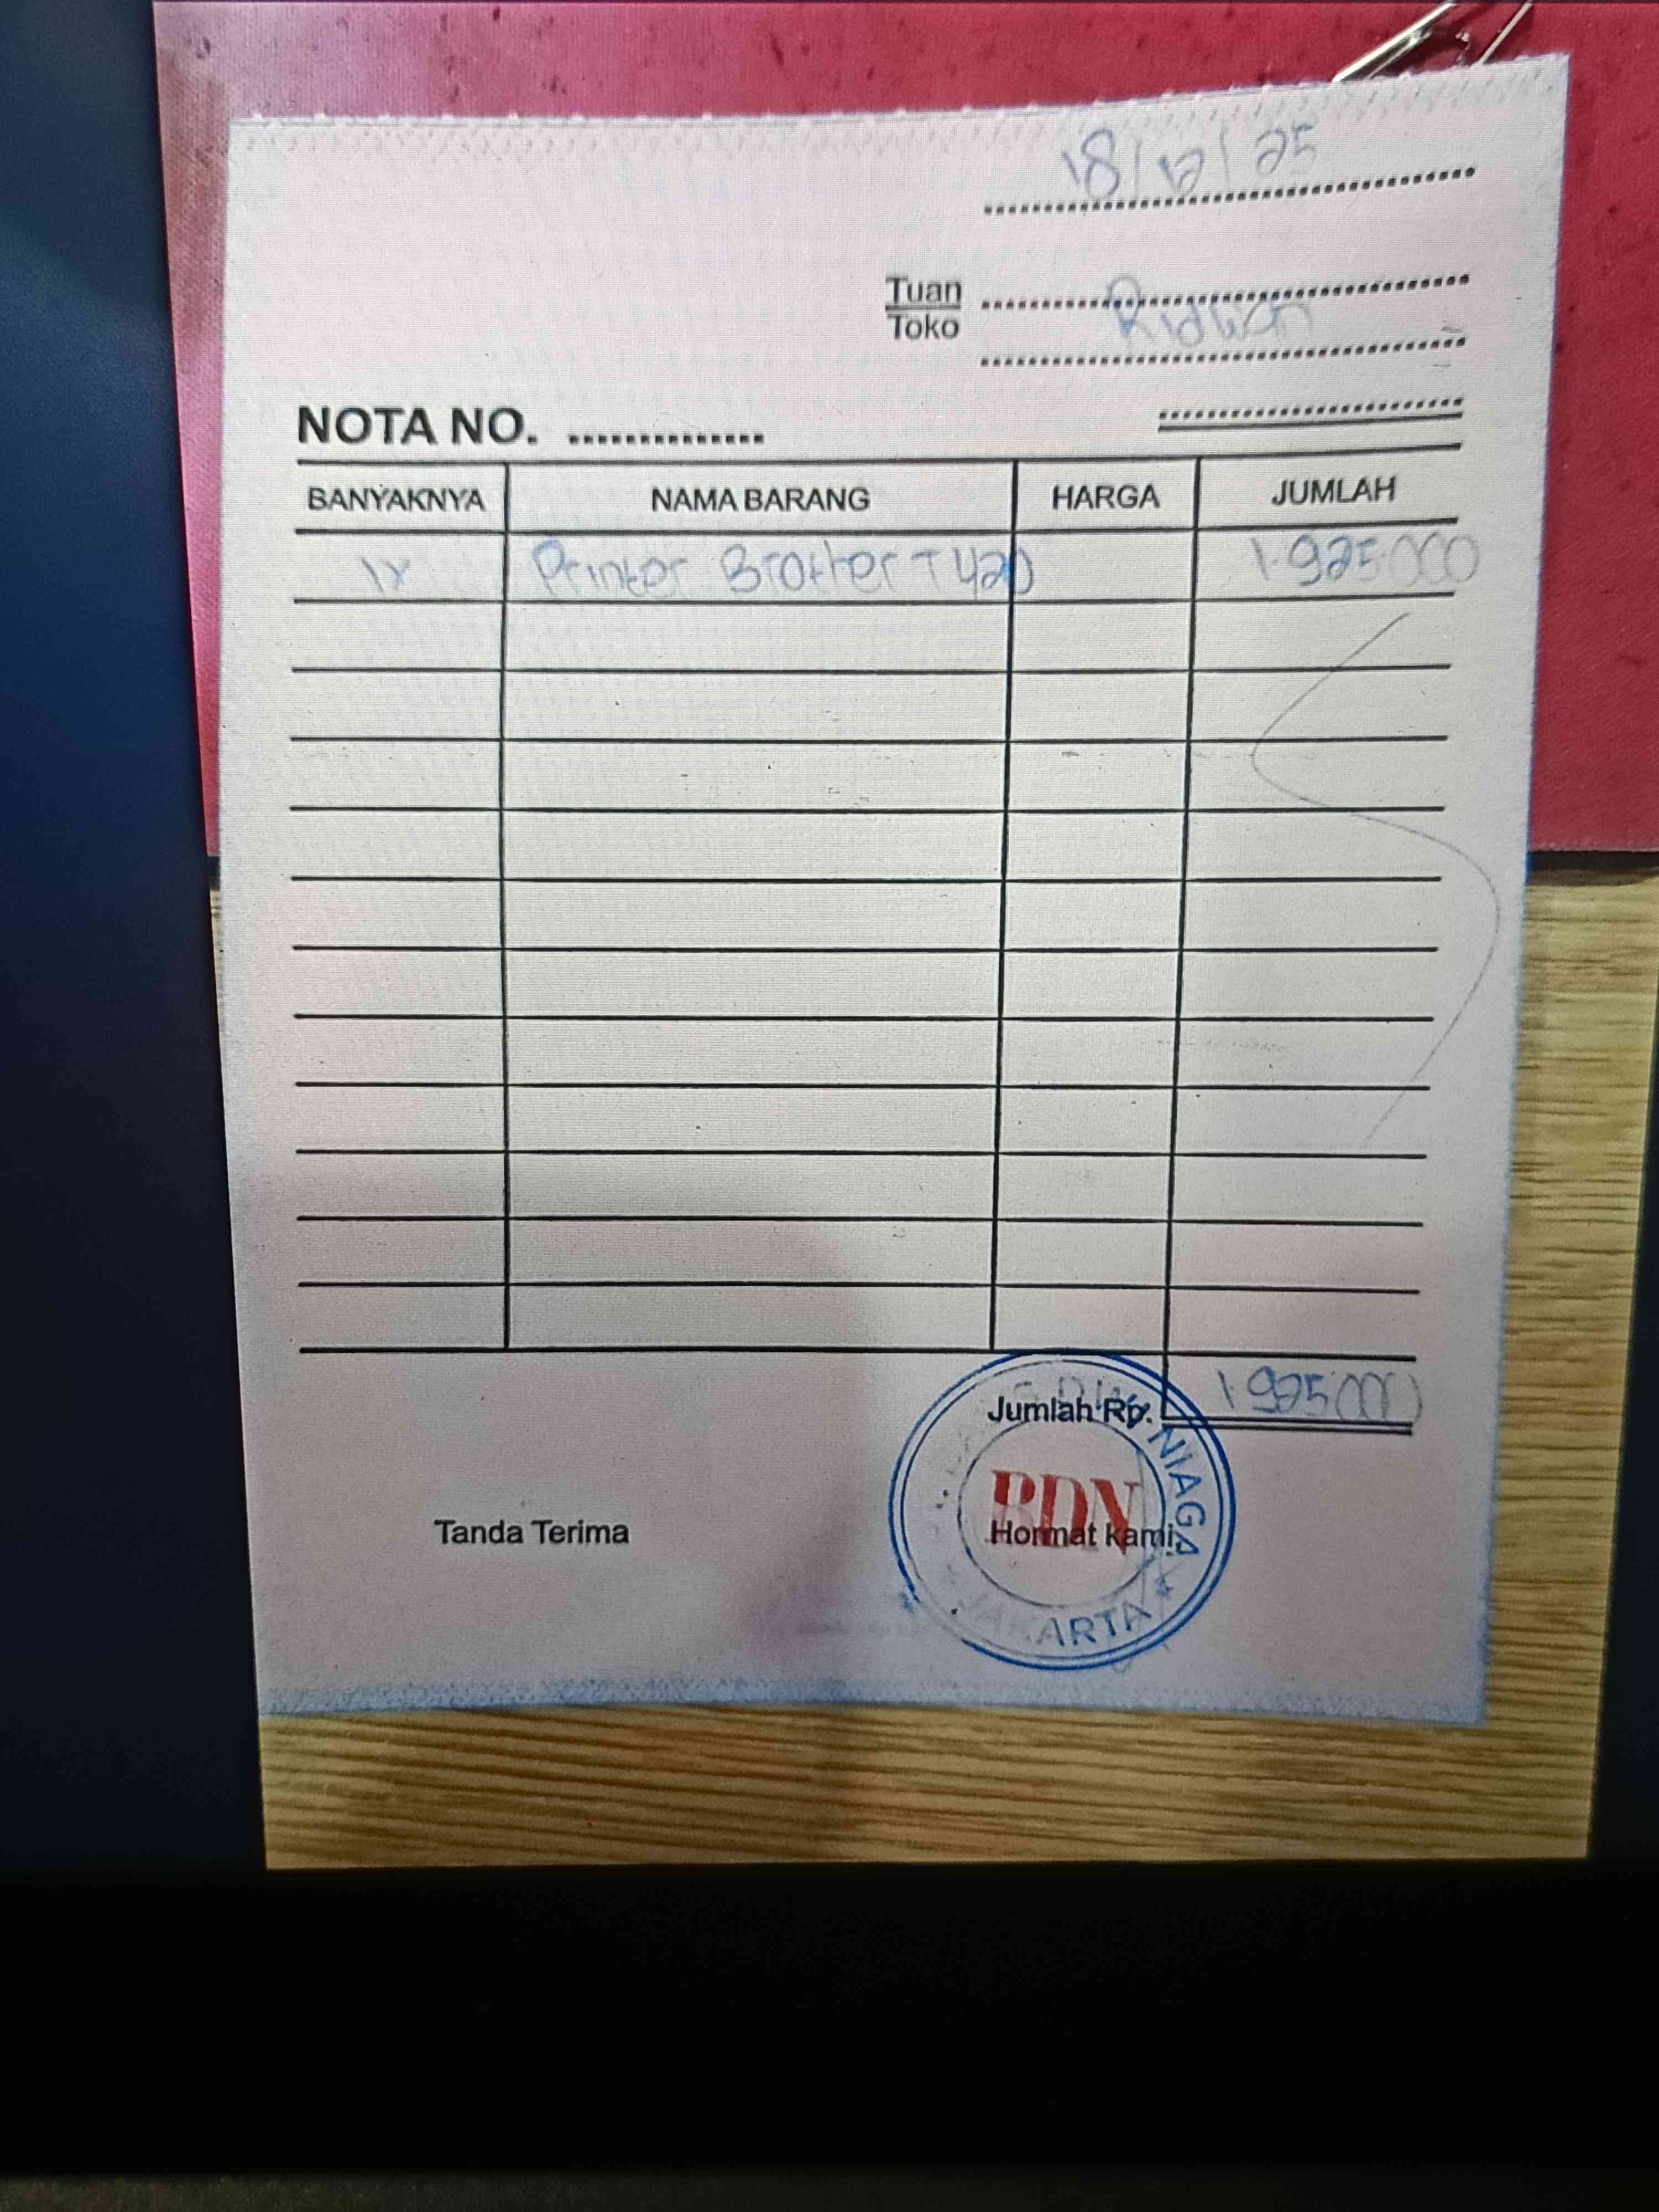 18/12/25
Tuan
Toko
Ridwan
NOTA NO. ..............
BANYAKNYA NAMA BARANG HARGA JUMLAH
1x Printer Brother T420 1.925.000
Jumlah Rp. 1.925.000
Tanda Terima Hormat kami,
NIAGA
BDN
JAKARTA